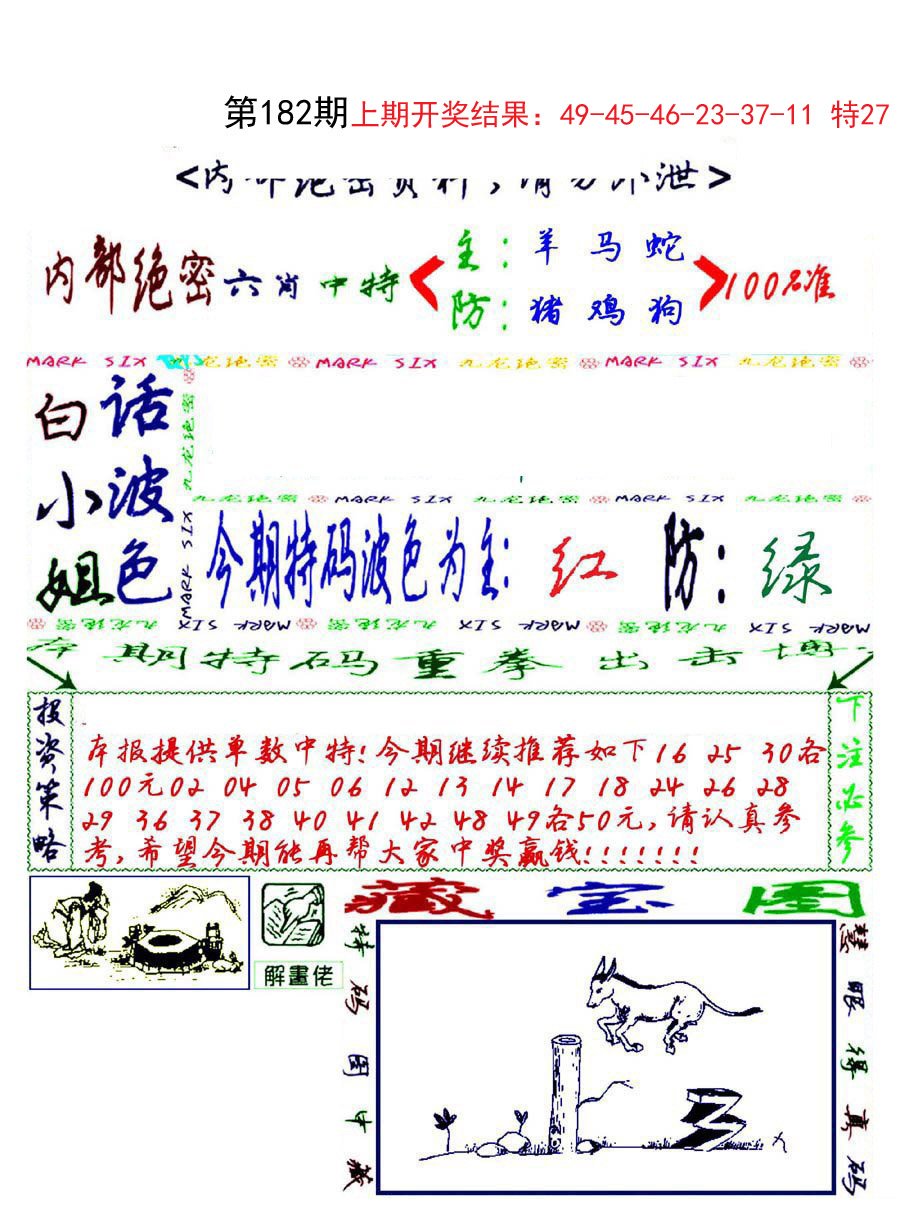 第182期上期开奖结果：49-45-46-23-37-11 特27
<内部绝密资料，请勿外泄>
内部绝密六肖中特
主：羊马蛇
防：猪鸡狗
100%准
MARK SIX 九龙绝密 MARK SIX 九龙绝密 MARK SIX 九龙绝密
白话
小波
姐色
九龙绝密 MARK SIX
九龙绝密 MARK SIX 九龙绝密 MARK SIX 九龙绝密
今期特码波色为主：红 防：绿
九龙绝密 MARK SIX MARK SIX 九龙绝密 MARK SIX 九龙绝密 MARK SIX
本期特码重拳出击
投资策略
本报提供单数中特！今期继续推荐如下16 25 30各
100元02 04 05 06 12 13 14 17 18 24 26 28
29 36 37 38 40 41 42 48 49各50元，请认真参
考，希望今期能再帮大家中奖赢钱！！！！！！！
下注必参
解畫佬
藏宝图
特码图中藏
慧眼得真码